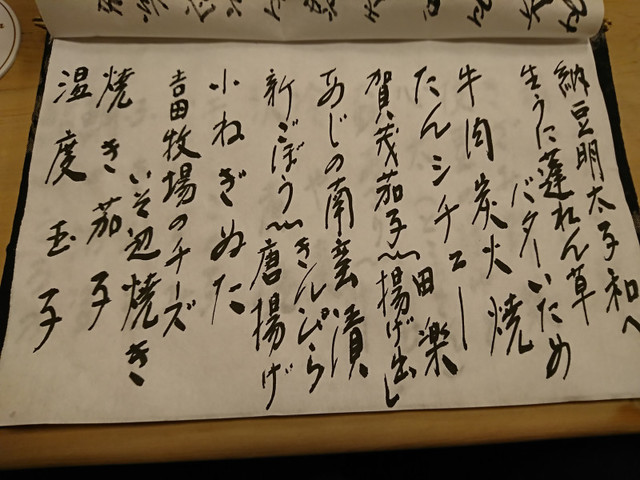 納豆明太子和へ
生うに蓬れん草
バターいため
牛肉炭火焼
たんシチュー
賀茂茄子〜田楽
揚げ出し
あじの南蛮漬
新ごぼう〜きんぴら
唐揚げ
小ねぎぬた
吉田牧場のチーズ
いそ辺焼き
焼き茄子
温度玉子